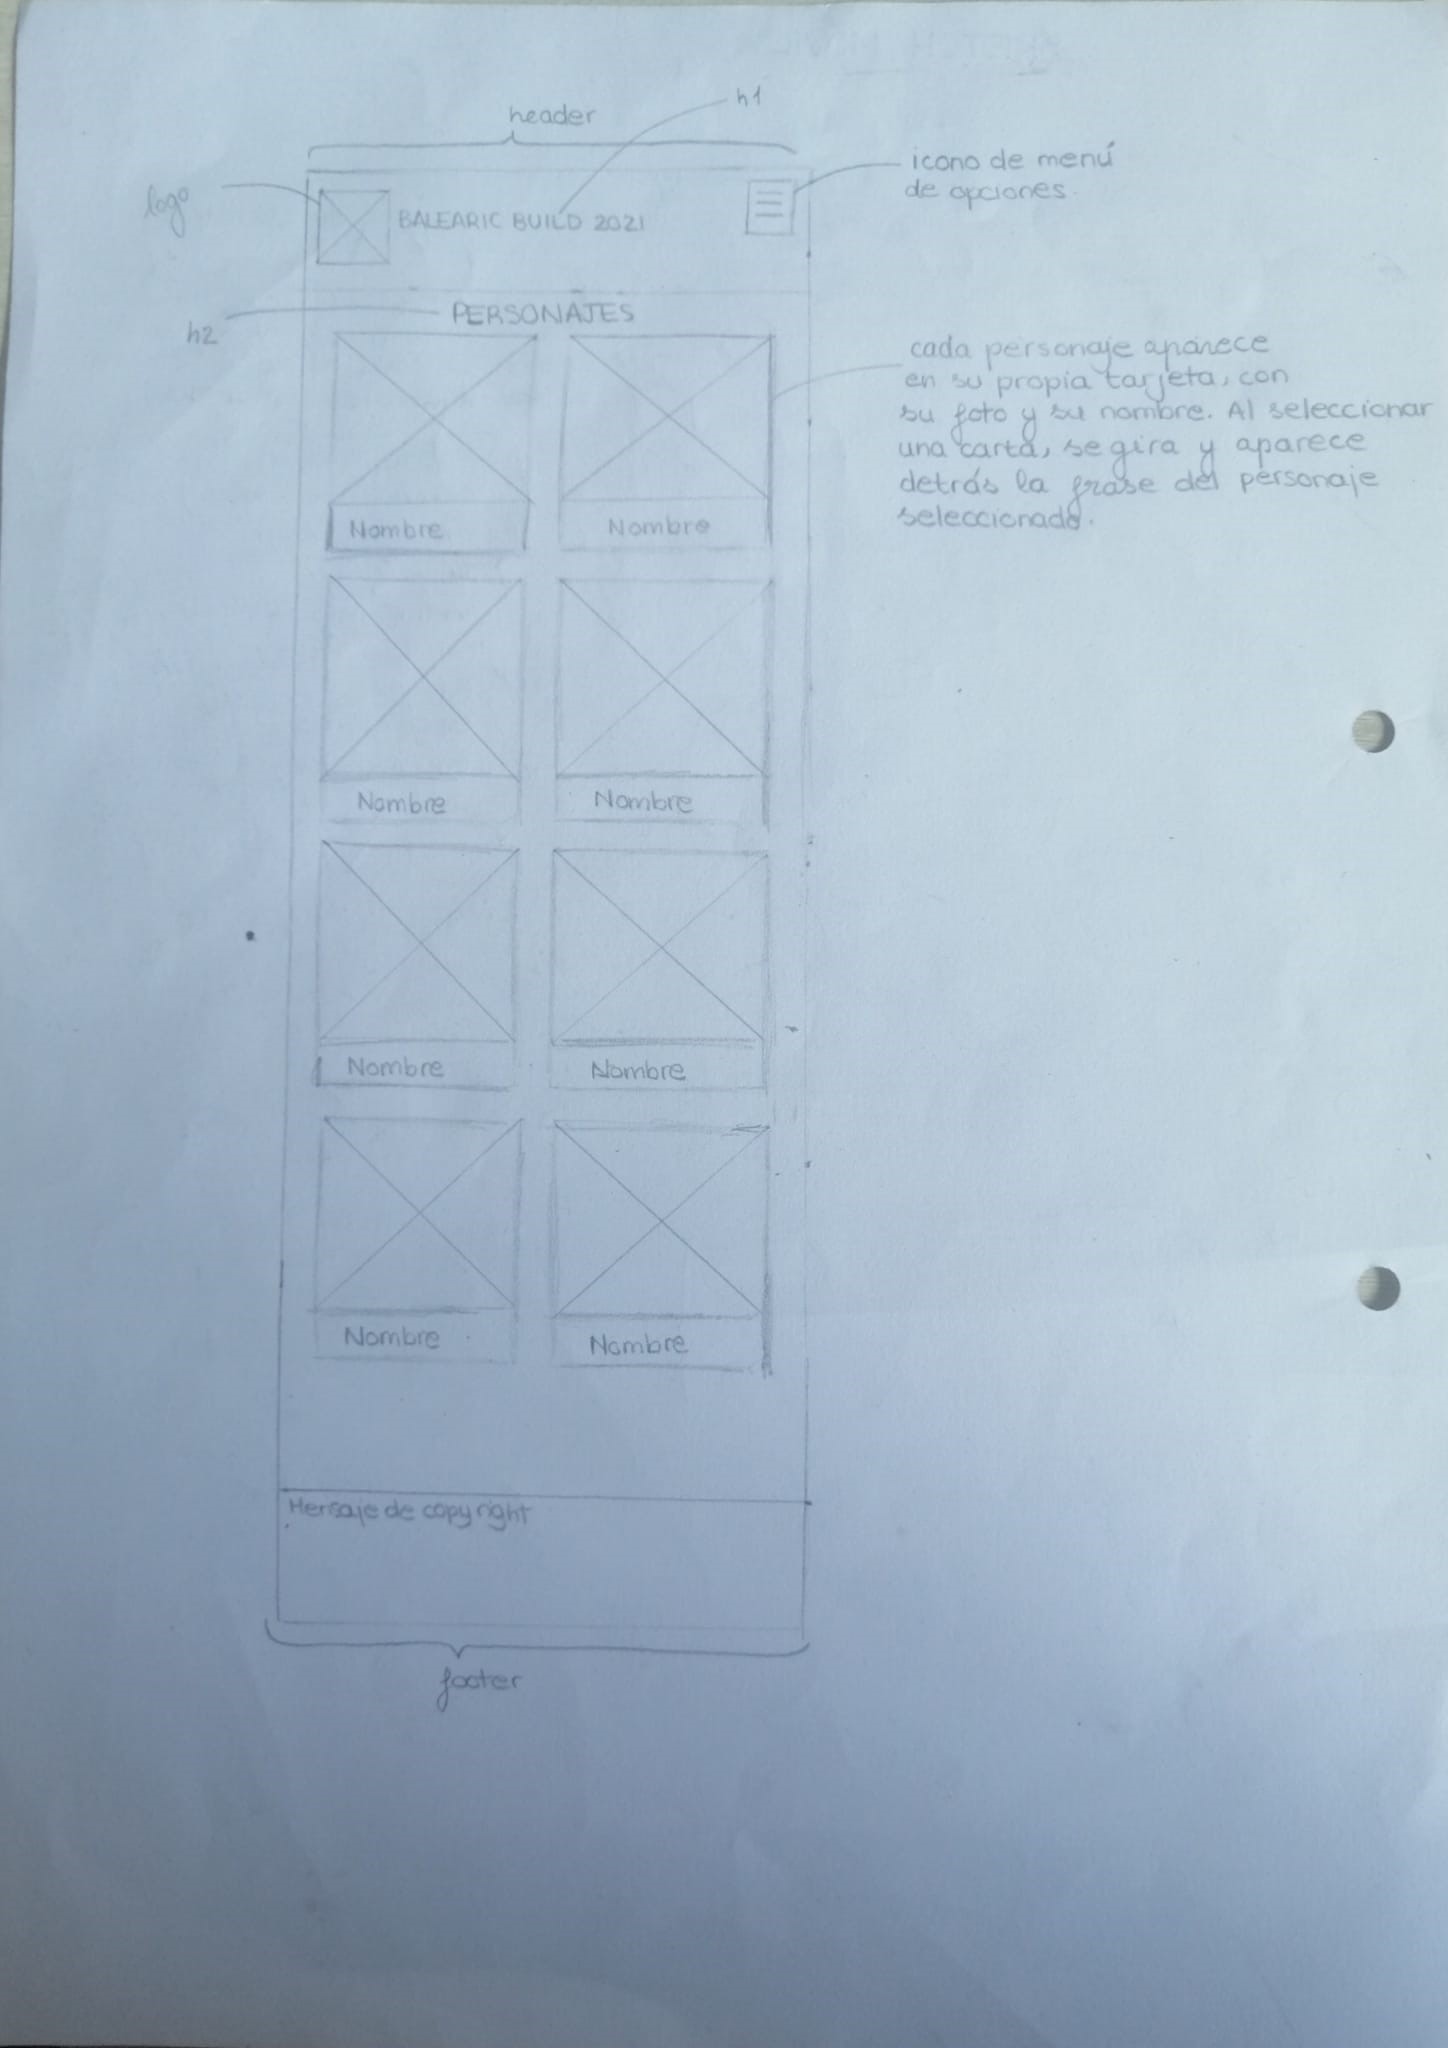 header
h1
icono de menú
de opciones.
logo
BALEARIC BUILD 2021
h2
PERSONAJES
cada personaje aparece
en su propia tarjeta, con
su foto y su nombre. Al seleccionar
una carta, se gira y aparece
detrás la frase del personaje
seleccionado.
Nombre
Nombre
Nombre
Nombre
Nombre
Nombre
Nombre
Nombre
Mensaje de copyright
footer